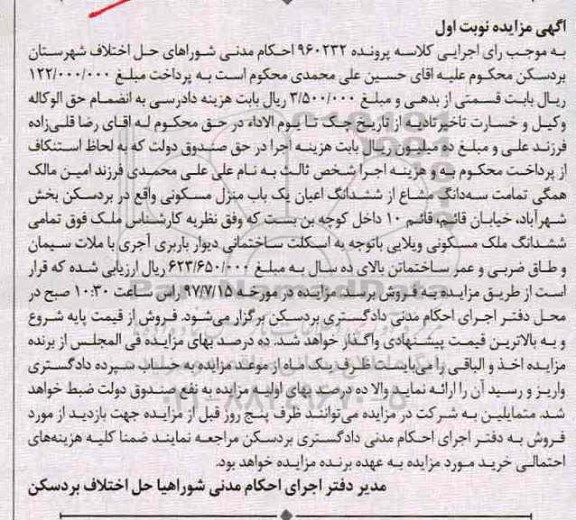 آگهی مزایده نوبت اول
به موجب رای اجرایی کلاسه پرونده ۹۶۰۲۳۲ احکام مدنی شوراهای حل اختلاف شهرستان
بردسکن محکوم علیه اقای حسین علی محمدی محکوم است به پرداخت مبلغ ۱۲۲/۰۰۰/۰۰۰
ریال بابت قسمتی از بدهی و مبلغ ۳/۵۰۰/۰۰۰ ریال بابت هزینه دادرسی به انضمام حق الوکاله
وکیل و خسارت تاخیر تادیه از تاریخ چک تا یوم الاداء در حق محکوم له اقای رضا قلی‌زاده
فرزند علی و مبلغ ده میلیون ریال بابت هزینه اجرا در حق صندوق دولت که به لحاظ استنکاف
از پرداخت محکوم به و هزینه اجرا شخص ثالث به نام علی علی محمدی فرزند امین مالک
همگی تمامت سه‌دانگ مشاع از ششدانگ اعیان یک باب منزل مسکونی واقع در بردسکن بخش
شهرآباد، خیابان قائم، قائم ۱۰ داخل کوچه بن بست که وفق نظریه کارشناس ملک فوق تمامی
ششدانگ ملک مسکونی ویلایی باتوجه به اسکلت ساختمانی دیوار باربری آجری با ملات سیمان
و طاق ضربی و عمر ساختماتن بالای ده سال به مبلغ ۶۲۳/۶۵۰/۰۰۰ ریال ارزیابی شده که قرار
است از طریق مزایده به فروش برسد مزایده در مورخه ۹۷/۷/۱۵ راس ساعت ۱۰:۳۰ صبح در
محل دفتر اجرای احکام مدنی دادگستری بردسکن برگزار می‌شود. فروش از قیمت پایه شروع
و به بالاترین قیمت پیشنهادی واگذار خواهد شد. ده درصد بهای مزایده فی المجلس از برنده
مزایده اخذ و الباقی را می‌بایست ظرف یک ماه از موعد مزایده به حساب سپرده دادگستری
واریز و رسید آن را ارائه نماید والا ده درصد بهای اولیه مزایده به نفع صندوق دولت ضبط خواهد
شد. متمایلین به شرکت در مزایده می‌توانند ظرف پنج روز قبل از مزایده جهت بازدید از مورد
فروش به دفتر اجرای احکام مدنی دادگستری بردسکن مراجعه نمایند ضمنا کلیه هزینه‌های
احتمالی خرید مورد مزایده به عهده برنده مزایده خواهد بود.
مدیر دفتر اجرای احکام مدنی شوراهیا حل اختلاف بردسکن